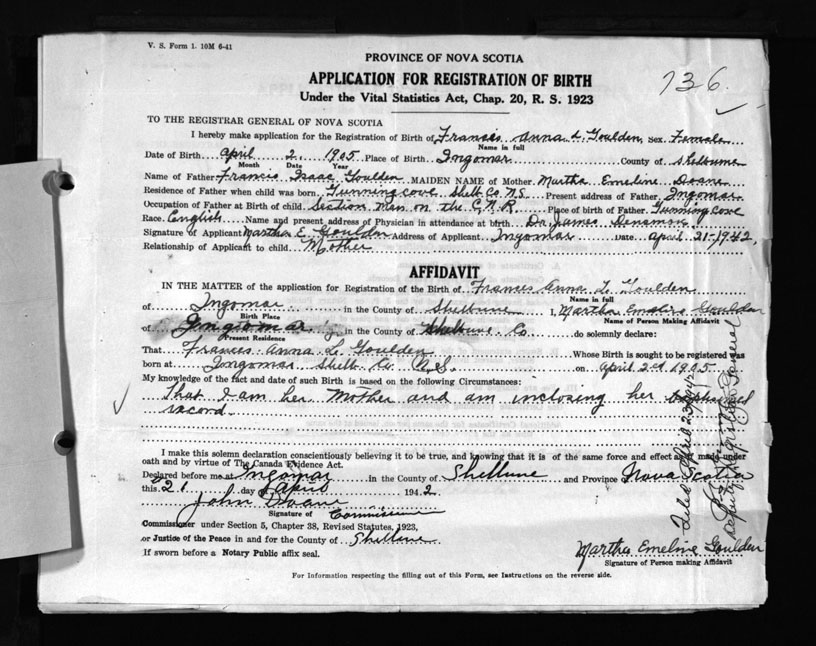 V. S. Form 1. 10M 6-41
PROVINCE OF NOVA SCOTIA
APPLICATION FOR REGISTRATION OF BIRTH
736
Under the Vital Statistics Act, Chap. 20, R. S. 1923
TO THE REGISTRAR GENERAL OF NOVA SCOTIA
I hereby make application for the Registration of Birth of Frances Anna L. Goulden, Sex Female
Name in full
Date of Birth April 2, 1905 Place of Birth Ingomar County of Shelburne
Month Date Year
Name of Father Francis Isaac Goulden MAIDEN NAME of Mother Martha Emeline Doane
Residence of Father when child was born Gunning cove, Shelb Co N.S. Present address of Father Ingomar
Occupation of Father at Birth of child Section Man on the C.N.R. Place of birth of Father Gunning Cove
Race English Name and present address of Physician in attendance at birth Dr. James
Signature of Applicant Martha E. Goulden Address of Applicant Ingomar Date April 21-1942
Relationship of Applicant to child Mother
AFFIDAVIT
IN THE MATTER of the application for Registration of the Birth of Frances Anna L. Goulden
Name in full
of Ingomar in the County of Shelburne I, Martha Emeline Goulden
Birth Place Name of Person Making Affidavit
of Ingomar in the County of Shelburne Co. do solemnly declare:
Present Residence
That Frances Anna L. Goulden Whose Birth is sought to be registered was
born at Ingomar Shelb. Co. N.S. on April 2nd 1905
My knowledge of the fact and date of such Birth is based on the following Circumstances:
That I am her Mother and am inclosing her baptismal
record.
I make this solemn declaration conscientiously believing it to be true, and knowing that it is of the same force and effect as if made under
oath and by virtue of The Canada Evidence Act.
Declared before me at Ingomar in the County of Shelburne and Province of Nova Scotia
this 21 day of April 1942
John Doane
Signature of Commissioner
Commissioner under Section 5, Chapter 38, Revised Statutes, 1923,
or Justice of the Peace in and for the County of Shelburne
If sworn before a Notary Public affix seal.
Martha Emeline Goulden
Signature of Person making Affidavit
For Information respecting the filling out of this Form, see Instructions on the reverse side.
Filed April 23
Deputy Registrar General